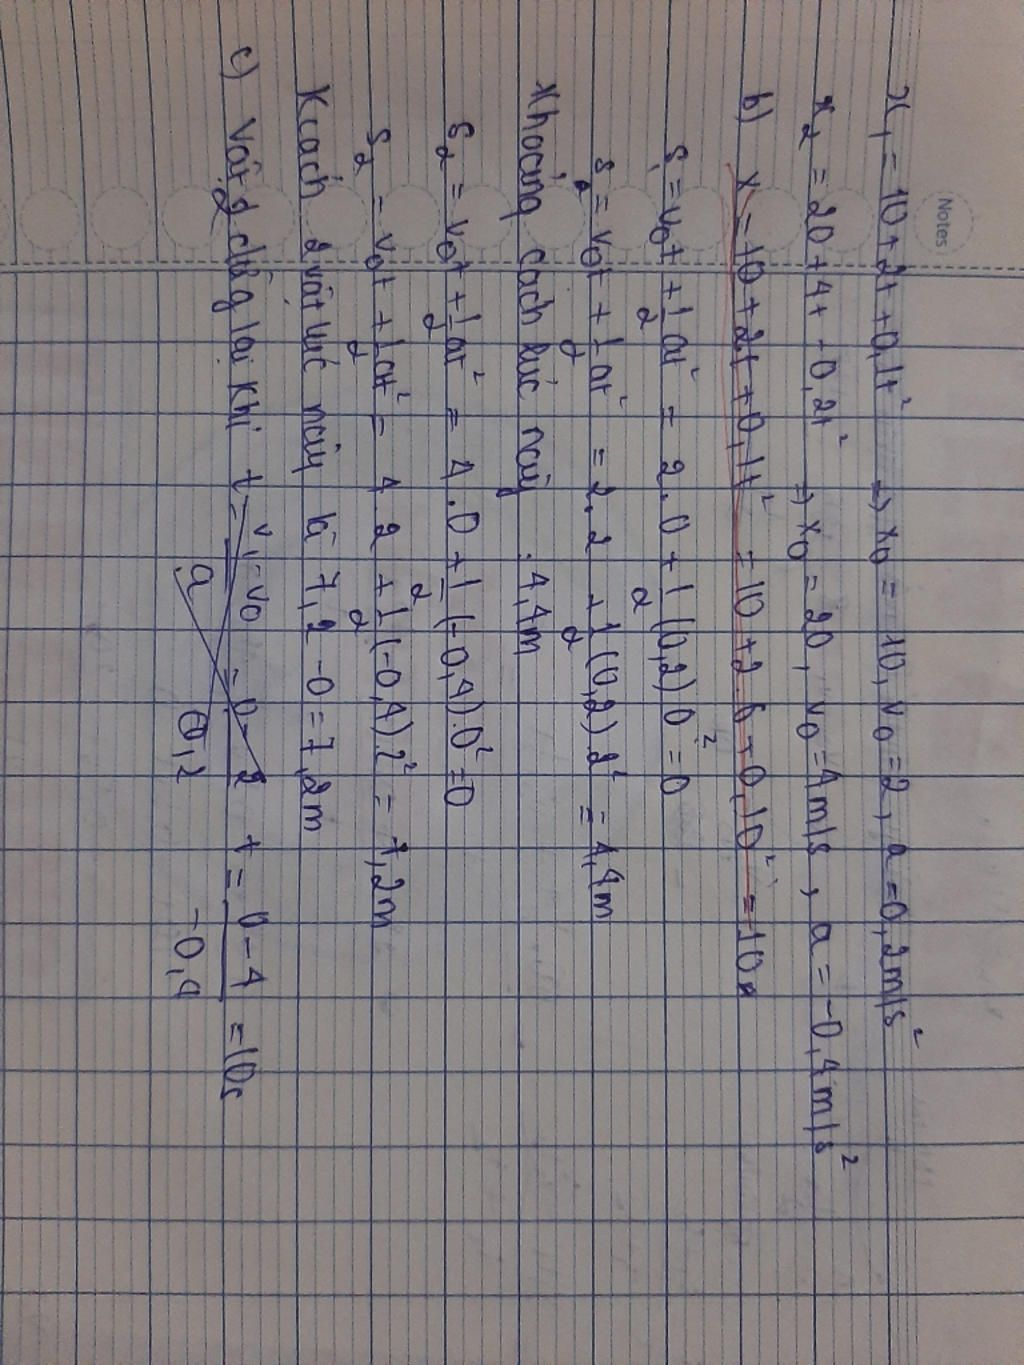 Notes
x₁ = 10 + 2t + 0,1t² => x₀ = 10, v₀ = 2, a = 0,2m/s²
x₂ = 20 + 4t - 0,2t² => x₀ = 20, v₀ = 4m/s, a = -0,4m/s²
b) x = 10 + 2t + 0,1t² = 10 + 2.0 + 0,10² = 10
s = v₀t + 1/2 at² = 2.0 + 1/2 (0,2) 0² = 0
s = v₀t + 1/2 at² = 2.2 + 1/2 (0,2) 2² = 4,4m
Khoảng cách lúc này : 4,4m
s₂ = v₀t + 1/2 at² = 4.0 + 1/2 (-0,4).0² = 0
s₂ = v₀t + 1/2 at² = 4.2 + 1/2 (-0,4) 2² = 7,2m
Kcách 2 vật lúc này là 7,2 - 0 = 7,2m
c) Vật 2 dừng lại khi t = v₁ - v₀ / a = 0 - 2 / 0,2 t = 0 - 4 / -0,4 = 10s